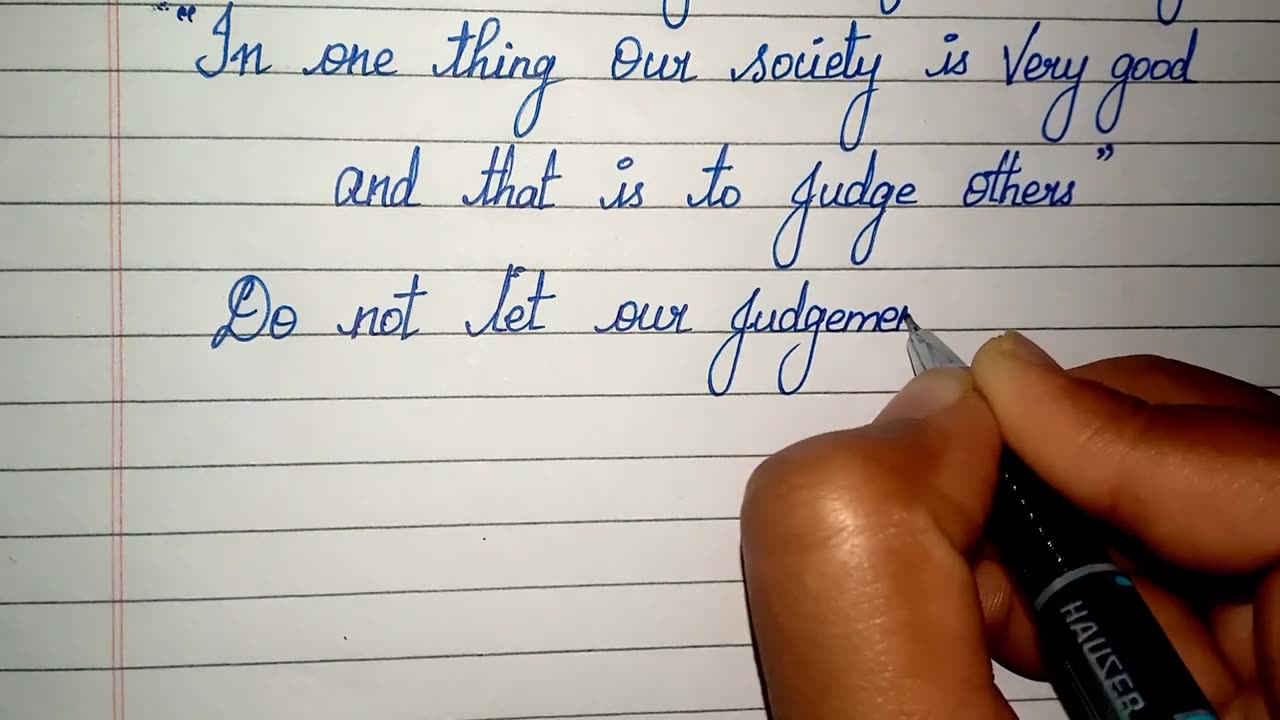 “In one thing Our society is Very good
and that is to judge others”
Do not let our judgemen
HAUSER